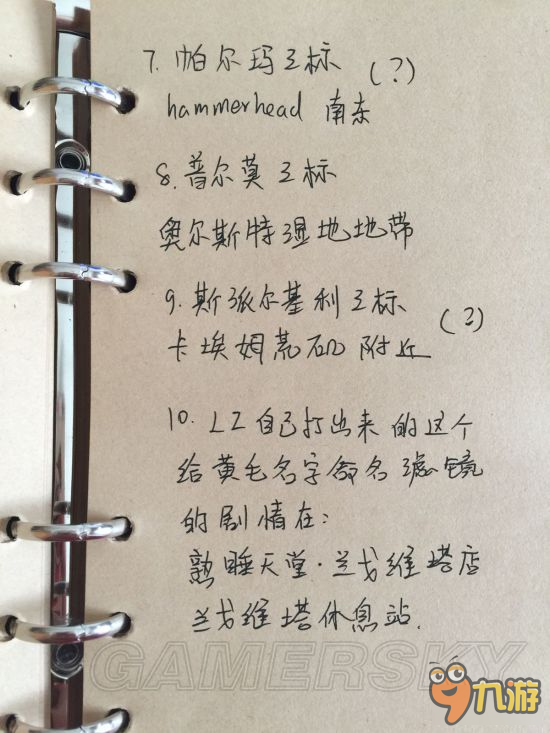 7. 帕尔玛立标 (?)
hammerhead 南东
8. 普尔莫立标
奥尔斯特湿地地带
9. 斯派尔基利立标 (?)
卡埃姆荒矿附近
10. LZ自己打出来的这个
给黄毛名字命名滤镜
的剧情在:
熟睡天堂·兰戈维塔店
兰戈维塔休息站.
GAMERSKY
九游